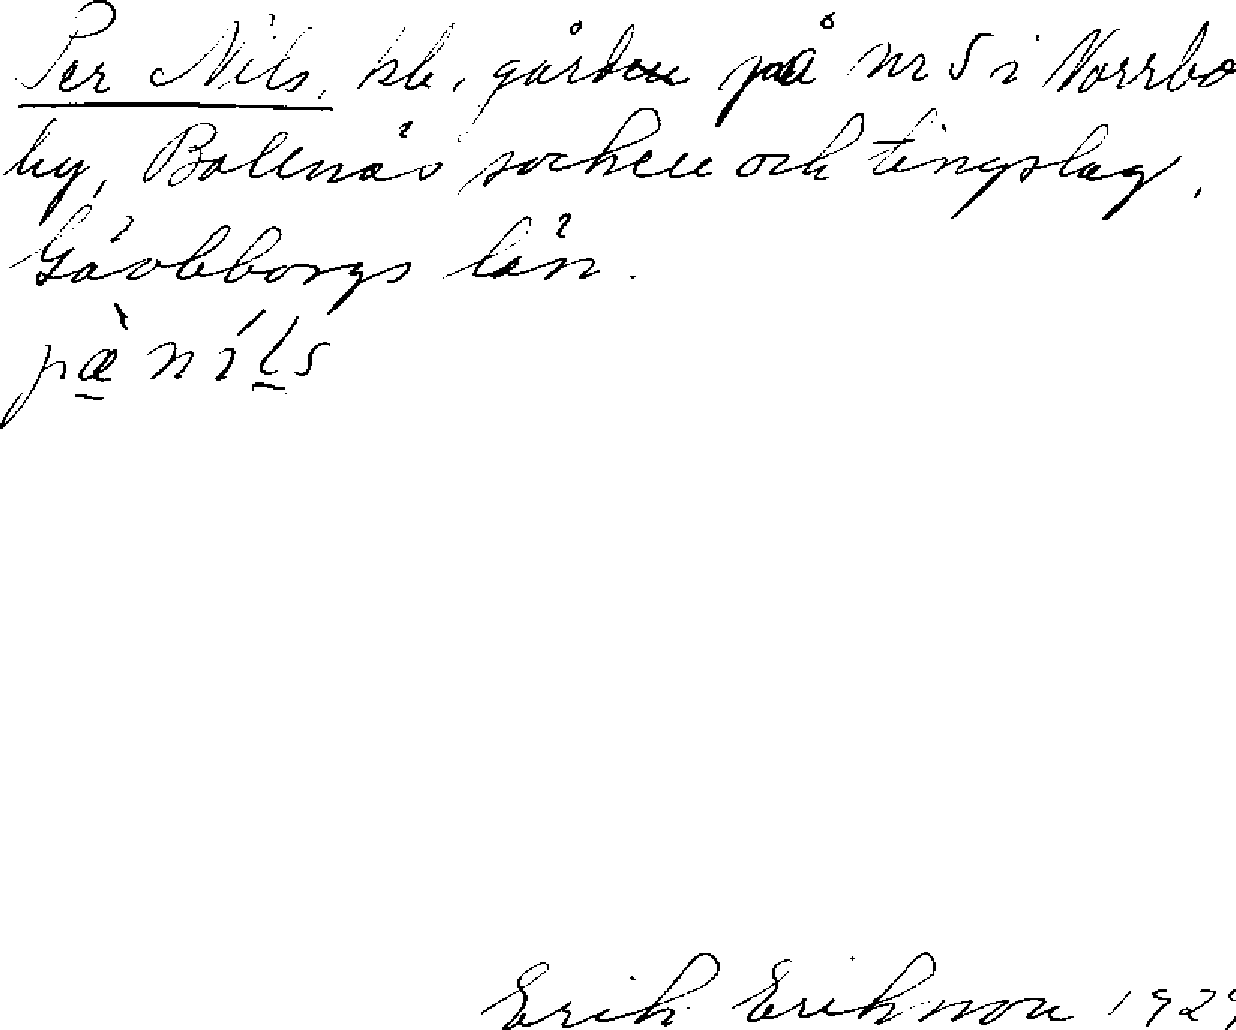 Per Nils, kb, gården på nr 5 i Norrbo
by, Bollnäs socken och tingslag,
Gävleborgs län.
pæ̀ níls
Erik Eriksson